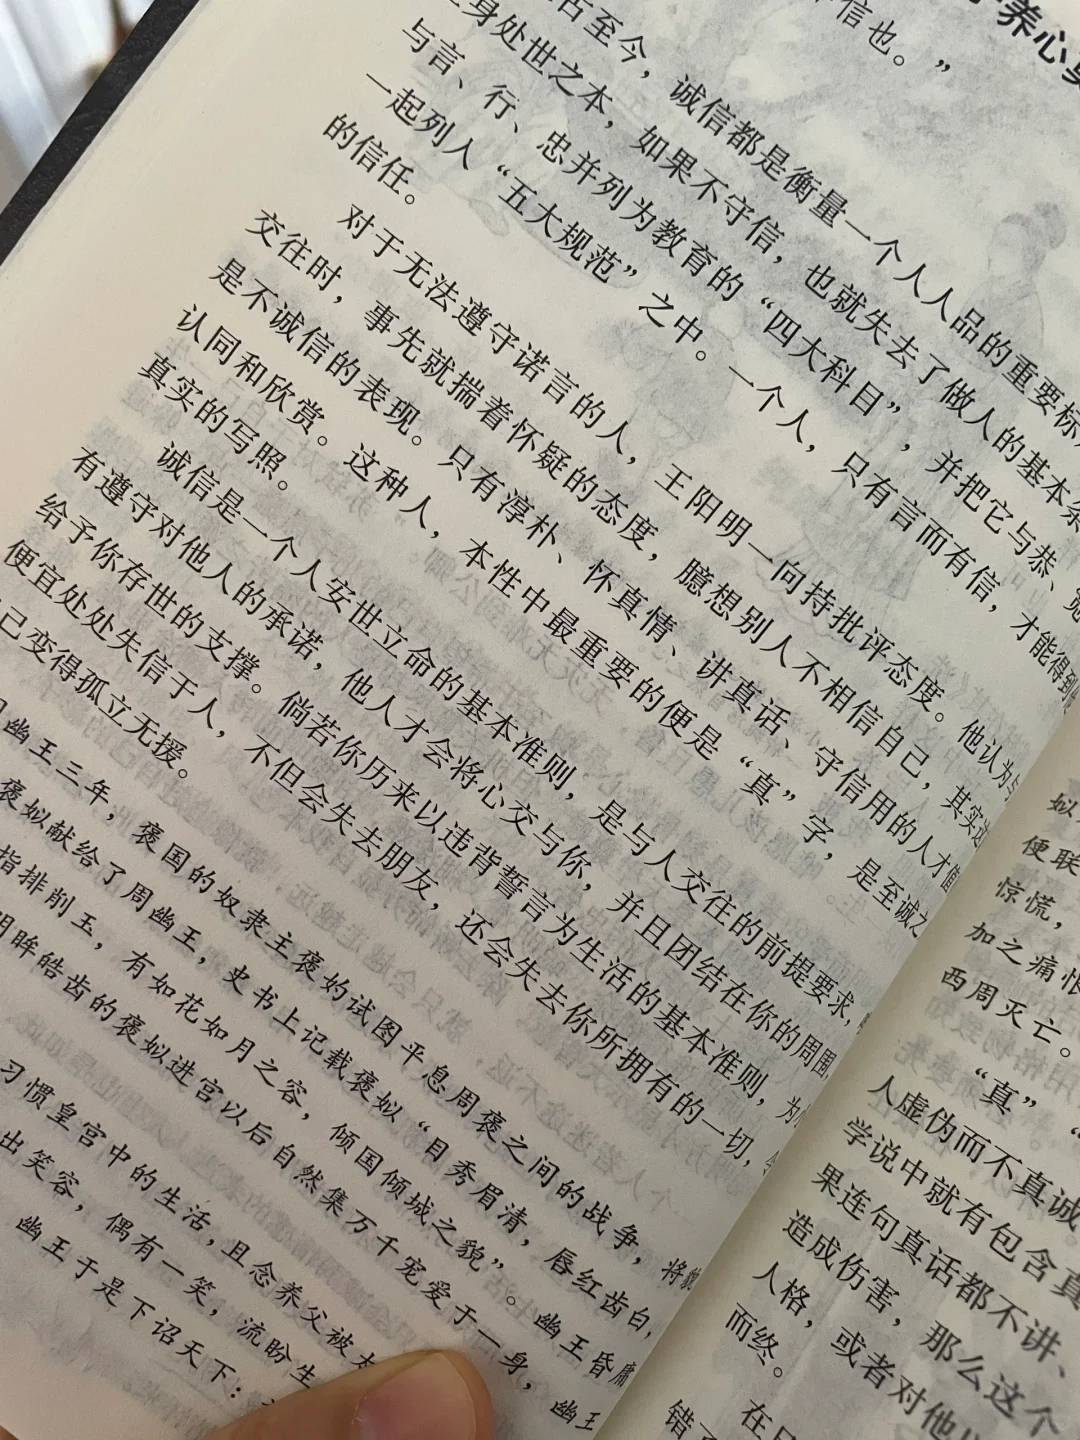 养心
信也。”
古至今，诚信都是衡量一个人人品的重要标
身处世之本，如果不守信，也就失去了做人的基本条
与言、行、忠并列为教育的“四大科目”，并把它与恭、宽
一起列人“五大规范”之中。一个人，只有言而有信，才能得到
的信任。
对于无法遵守诺言的人，王阳明一向持批评态度。他认为与
交往时，事先就揣着怀疑的态度，臆想别人不相信自己，其实这
是不诚信的表现。只有淳朴、怀真情、讲真话、守信用的人才值
认同和欣赏。这种人，本性中最重要的便是“真”字，是至诚之
真实的写照。
诚信是一个人安世立命的基本准则，是与人交往的前提要求，
有遵守对他人的承诺，他人才会将心交与你，并且团结在你的周围
给予你存世的支撑。倘若你历来以违背誓言为生活的基本准则，为
便宜处处失信于人，不但会失去朋友，还会失去你所拥有的一切，
己变得孤立无援。
幽王三年，褒国的奴隶主褒妁试图平息周褒之间的战争，将
褒姒献给了周幽王，史书上记载褒姒“目秀眉清，唇红齿白，
指排削玉，有如花如月之容，倾国倾城之貌”。幽王昏庸
明眸皓齿的褒姒进宫以后自然集万千宠爱于一身，幽王
习惯皇宫中的生活，且念养父被
出笑容，偶有一笑，流盼生
幽王于是下诏天下：
姒
便联
惊慌，
加之痛恨
西周灭亡。
“真”
人虚伪而不真诚
学说中就有包含真
果连句真话都不讲、
造成伤害，那么这个
人格，或者对他
而终。
在
错